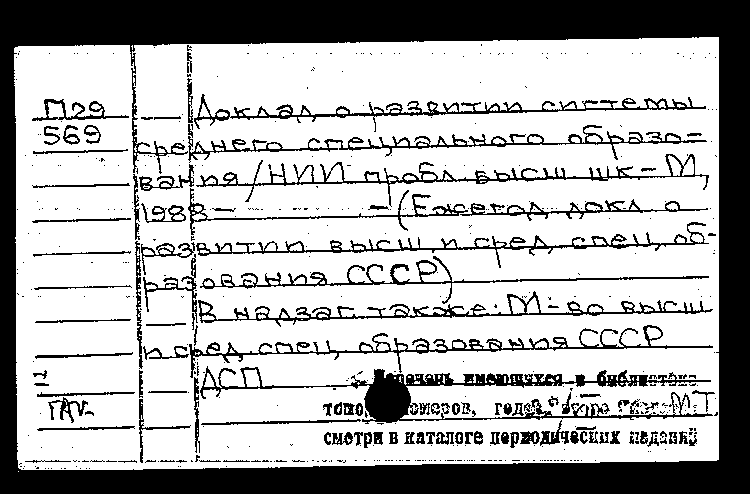 П29
569
Доклад о развитии системы
среднего специального образо=
вания/НИИ пробл. высш. шк.-М.,
1988- -(Ежегод. докл. о
развитии высш. и сред. спец. об-
разования СССР)
В надзаг. также: М-во высш.
и сред. спец. образования СССР
ДСП
Перечень имеющихся в библиотеке
номеров,
смотри в каталоге периодических изданий